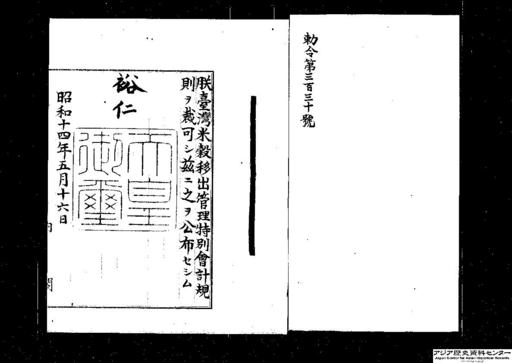 勅令第三百三十號
朕臺灣米穀移出管理特別會計規
則ヲ裁可シ茲ニ之ヲ公布セシム
裕仁
天皇
御璽
昭和十四年五月十六日
内閣
アジア歴史資料センター
Japan Center for Asian Historical Records